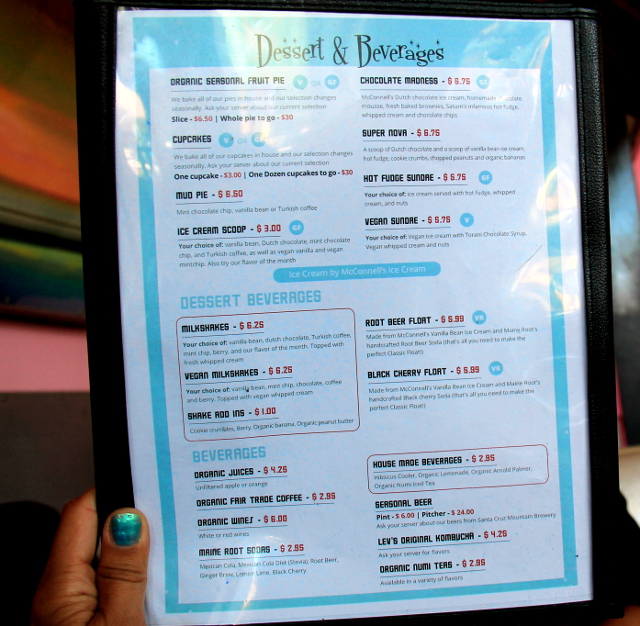 Dessert & Beverages
ORGANIC SEASONAL FRUIT PIE V OR GF
We bake all of our pies in house and our selection changes
seasonally. Ask your server about our current selection
Slice - $6.50 | Whole pie to go - $30
CUPCAKES V OR GF
We bake all of our cupcakes in house and our selection changes
seasonally. Ask your server about our current selection
One cupcake - $3.00 | One Dozen cupcakes to go - $30
MUD PIE - $ 6.50
Mint chocolate chip, vanilla bean or Turkish coffee
ICE CREAM SCOOP - $ 3.00 GF
Your choice of: vanilla bean, Dutch chocolate, mint chocolate
chip, and Turkish coffee, as well as vegan vanilla and vegan
mintchip. Also try our flavor of the month
CHOCOLATE MADNESS - $ 6.75 GF
McConnell's Dutch chocolate ice cream, homemade chocolate
mousse, fresh baked brownies, Saturn's infamous hot fudge,
whipped cream and chocolate chips
SUPER NOVA - $ 6.75
A scoop of Dutch chocolate and a scoop of vanilla bean ice cream,
hot fudge, cookie crumbs, chopped peanuts and organic bananas
HOT FUDGE SUNDAE - $ 5.75 GF
Your choice of: ice cream served with hot fudge, whipped
cream, and nuts
VEGAN SUNDAE - $ 5.75 V
Your choice of: Vegan ice cream with Torani Chocolate Syrup,
Vegan whipped cream and nuts
Ice Cream by McConnell's Ice Cream
DESSERT BEVERAGES
MILKSHAKES - $ 6.25
Your choice of: vanilla bean, dutch chocolate, Turkish coffee,
mint chip, berry, and our flavor of the month. Topped with
fresh whipped cream
VEGAN MILKSHAKES - $ 6.25
Your choice of: vanilla bean, mint chip, chocolate, coffee
and berry. Topped with vegan whipped cream
SHAKE ADD INS - $ 1.00
Cookie crumbles, Berry, Organic banana, Organic peanut butter
ROOT BEER FLOAT - $ 5.99 VR
Made from McConnell's Vanilla Bean Ice Cream and Maine Root's
handcrafted Root Beer Soda (that's all you need to make the
perfect Classic Float)
BLACK CHERRY FLOAT - $ 5.99 VR
Made from McConnell's Vanilla Bean Ice Cream and Maine Root's
handcrafted Black cherry Soda (that's all you need to make the
perfect Classic Float)
BEVERAGES
ORGANIC JUICES - $ 4.25
Unfiltered apple or orange
ORGANIC FAIR TRADE COFFEE - $ 2.95
ORGANIC WINES - $ 6.00
White or red wines
MAINE ROOT SODAS - $ 2.95
Mexican Cola, Mexican Cola Diet (Stevia), Root Beer,
Ginger Brew, Lemon Lime, Black Cherry
HOUSE MADE BEVERAGES - $ 2.95
Hibiscus Cooler, Organic Lemonade, Organic Arnold Palmer,
Organic Numi Iced Tea
SEASONAL BEER
Pint - $ 6.00 | Pitcher - $ 24.00
Ask your server about our beers from Santa Cruz Mountain Brewery
LEV'S ORIGINAL KOMBUCHA - $ 4.25
Ask your server for flavors
ORGANIC NUMI TEAS - $ 2.95
Available in a variety of flavors